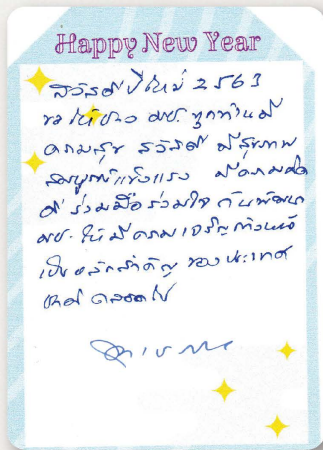 Happy New Year
สวัสดี ปีใหม่ 2563
ขอให้ชาว มช. ทุกท่านมี
ความสุข สวัสดี มีสุขภาพ
สมบูรณ์แข็งแรง มีความคิด
ดี ร่วมมือร่วมใจ กันพัฒนา
มช. ให้มีความเจริญก้าวหน้า
เป็นหลักสำคัญ ของประเทศ
ตลอดไป